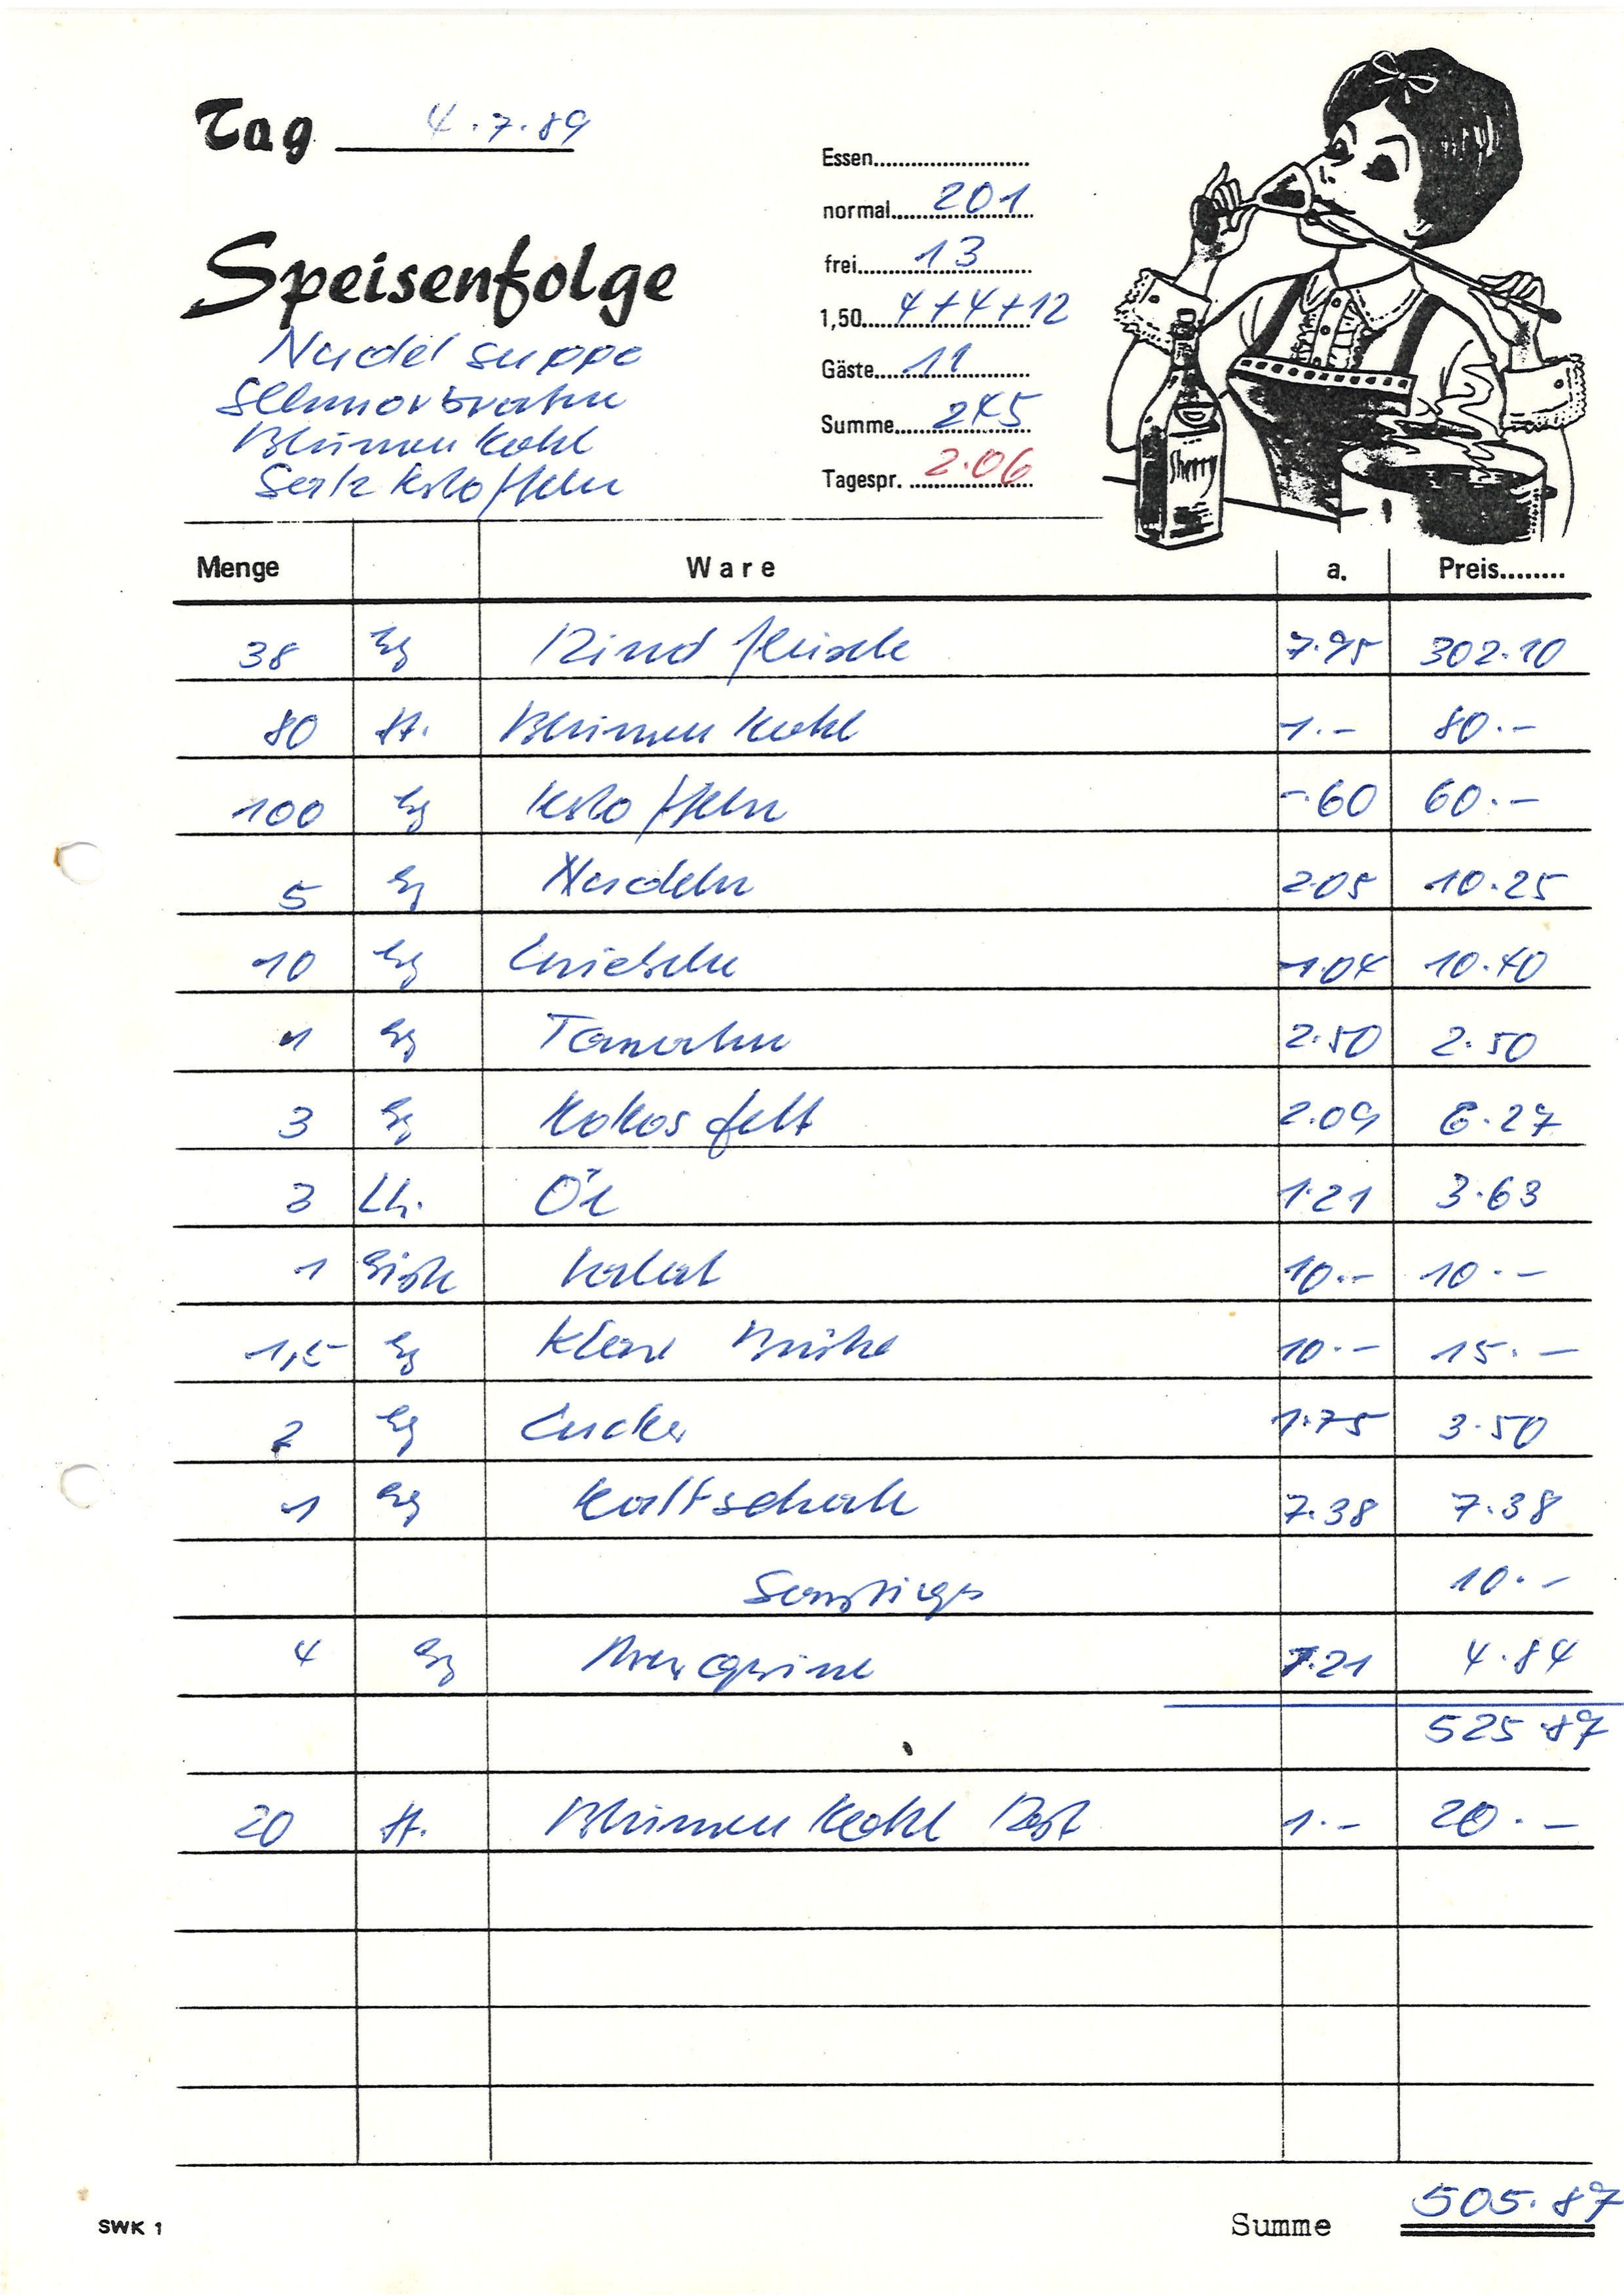 Tag 4.7.89
Speisenfolge
Nudelsuppe
Schmorbraten
Blumenkohl
Salzktoffeln
Essen
normal 201
frei 13
1,50 4+4+12
Gäste 11
Summe 245
Tagespr. 2.06
Sherry
Menge Ware a. Preis
38 kg Rindfleisch 7.95 302.10
80 St. Blumenkohl 1.- 80.-
100 kg Ktoffeln -.60 60.-
5 kg Nudeln 2.05 10.25
10 kg Zwiebeln 1.04 10.40
1 kg Tomaten 2.50 2.50
3 kg Kokosfett 2.09 6.27
3 Lt. Öl 1.21 3.63
1 Kiste Salat 10.- 10.-
1,5 kg Klare Brühe 10.- 15.-
2 kg Zucker 1.75 3.50
1 kg Kaltschale 7.38 7.38
Sonstiges 10.-
4 kg Margarine 1.21 4.84
525.87
20 St. Blumenkohl Rest 1.- 20.-
SWK 1
Summe 505.87